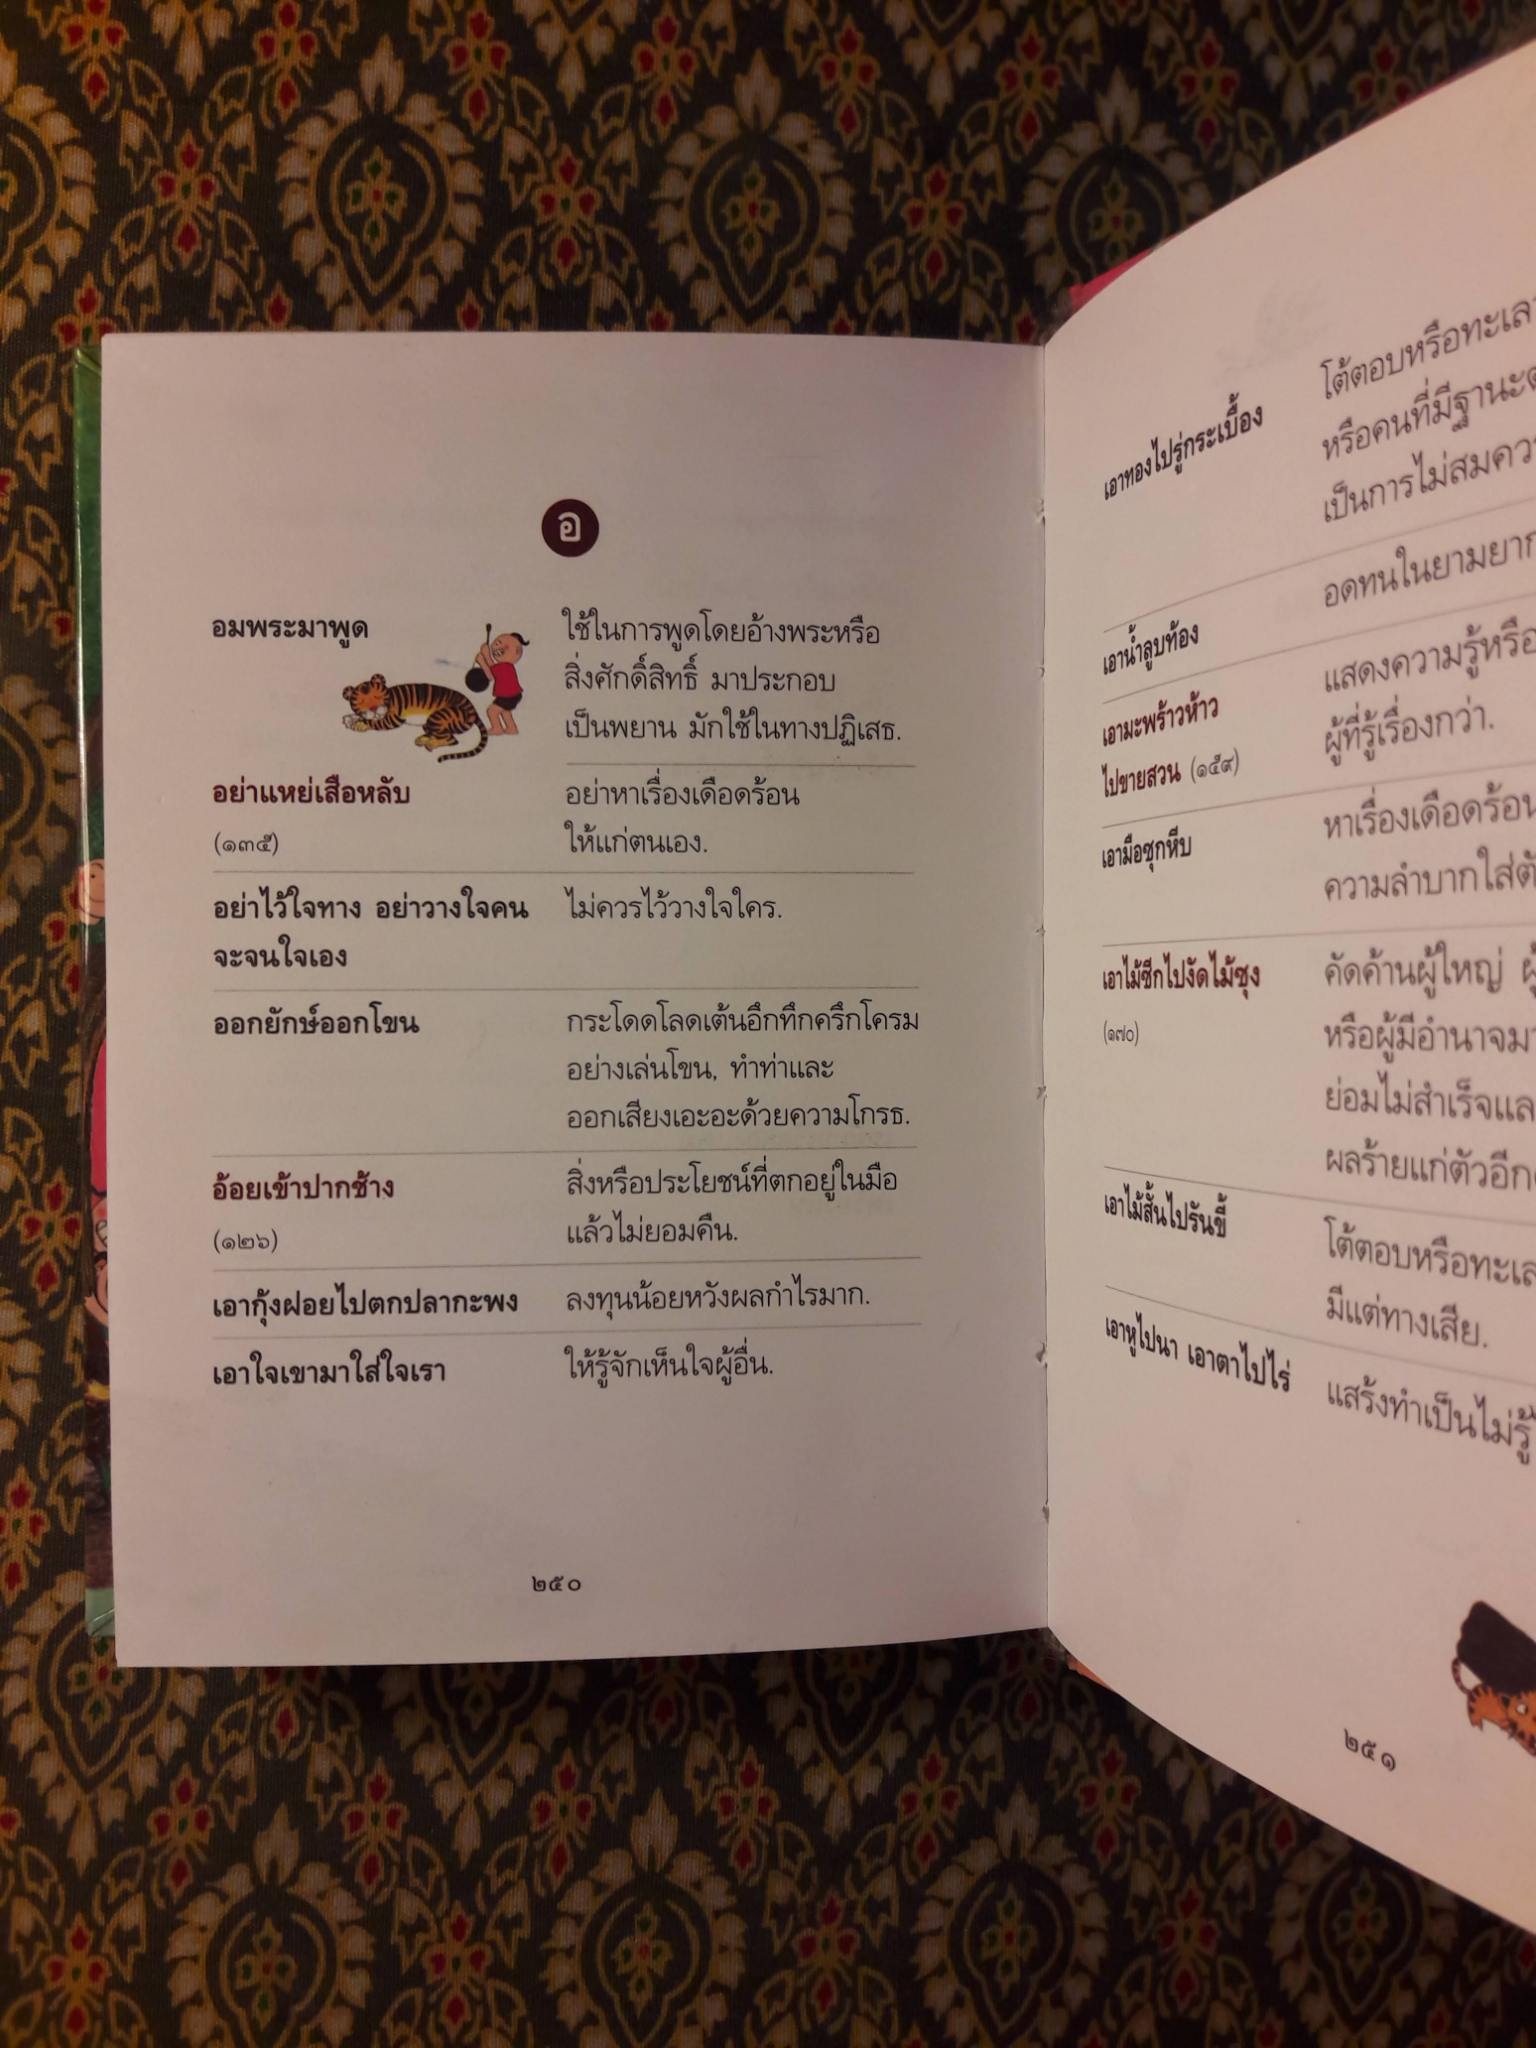 อ
อมพระมาพูด
ใช้ในการพูดโดยอ้างพระหรือ
สิ่งศักดิ์สิทธิ์ มาประกอบ
เป็นพยาน มักใช้ในทางปฏิเสธ.
อย่าแหย่เสือหลับ
(๑๓๕)
อย่าหาเรื่องเดือดร้อน
ให้แก่ตนเอง.
อย่าไว้ใจทาง อย่าวางใจคน
จะจนใจเอง
ไม่ควรไว้วางใจใคร.
ออกยักษ์ออกโขน
กระโดดโลดเต้นอึกทึกครึกโครม
อย่างเล่นโขน, ทำท่าและ
ออกเสียงเอะอะด้วยความโกรธ.
อ้อยเข้าปากช้าง
(๑๒๖)
สิ่งหรือประโยชน์ที่ตกอยู่ในมือ
แล้วไม่ยอมคืน.
เอากุ้งฝอยไปตกปลากะพง
ลงทุนน้อยหวังผลกำไรมาก.
เอาใจเขามาใส่ใจเรา
ให้รู้จักเห็นใจผู้อื่น.
๒๕๐
เอาทองไปรู่กระเบื้อง
โต้ตอบหรือทะเลา
หรือคนที่มีฐานะ
เป็นการไม่สมคว
เอาน้ำลูบท้อง
อดทนในยามยาก
เอามะพร้าวห้าว
ไปขายสวน (๑๕๙)
แสดงความรู้หรือ
ผู้ที่รู้เรื่องกว่า.
เอามือซุกหีบ
หาเรื่องเดือดร้อน
ความลำบากใส่ตัว
เอาไม้ซีกไปงัดไม้ซุง
(๑๗๐)
คัดค้านผู้ใหญ่
หรือผู้มีอำนาจมา
ย่อมไม่สำเร็จแล
ผลร้ายแก่ตัวอีก
เอาไม้สั้นไปรันขี้
โต้ตอบหรือทะเล
มีแต่ทางเสีย.
เอาหูไปนา เอาตาไปไร่
แสร้งทำเป็นไม่รู้
๒๕๑